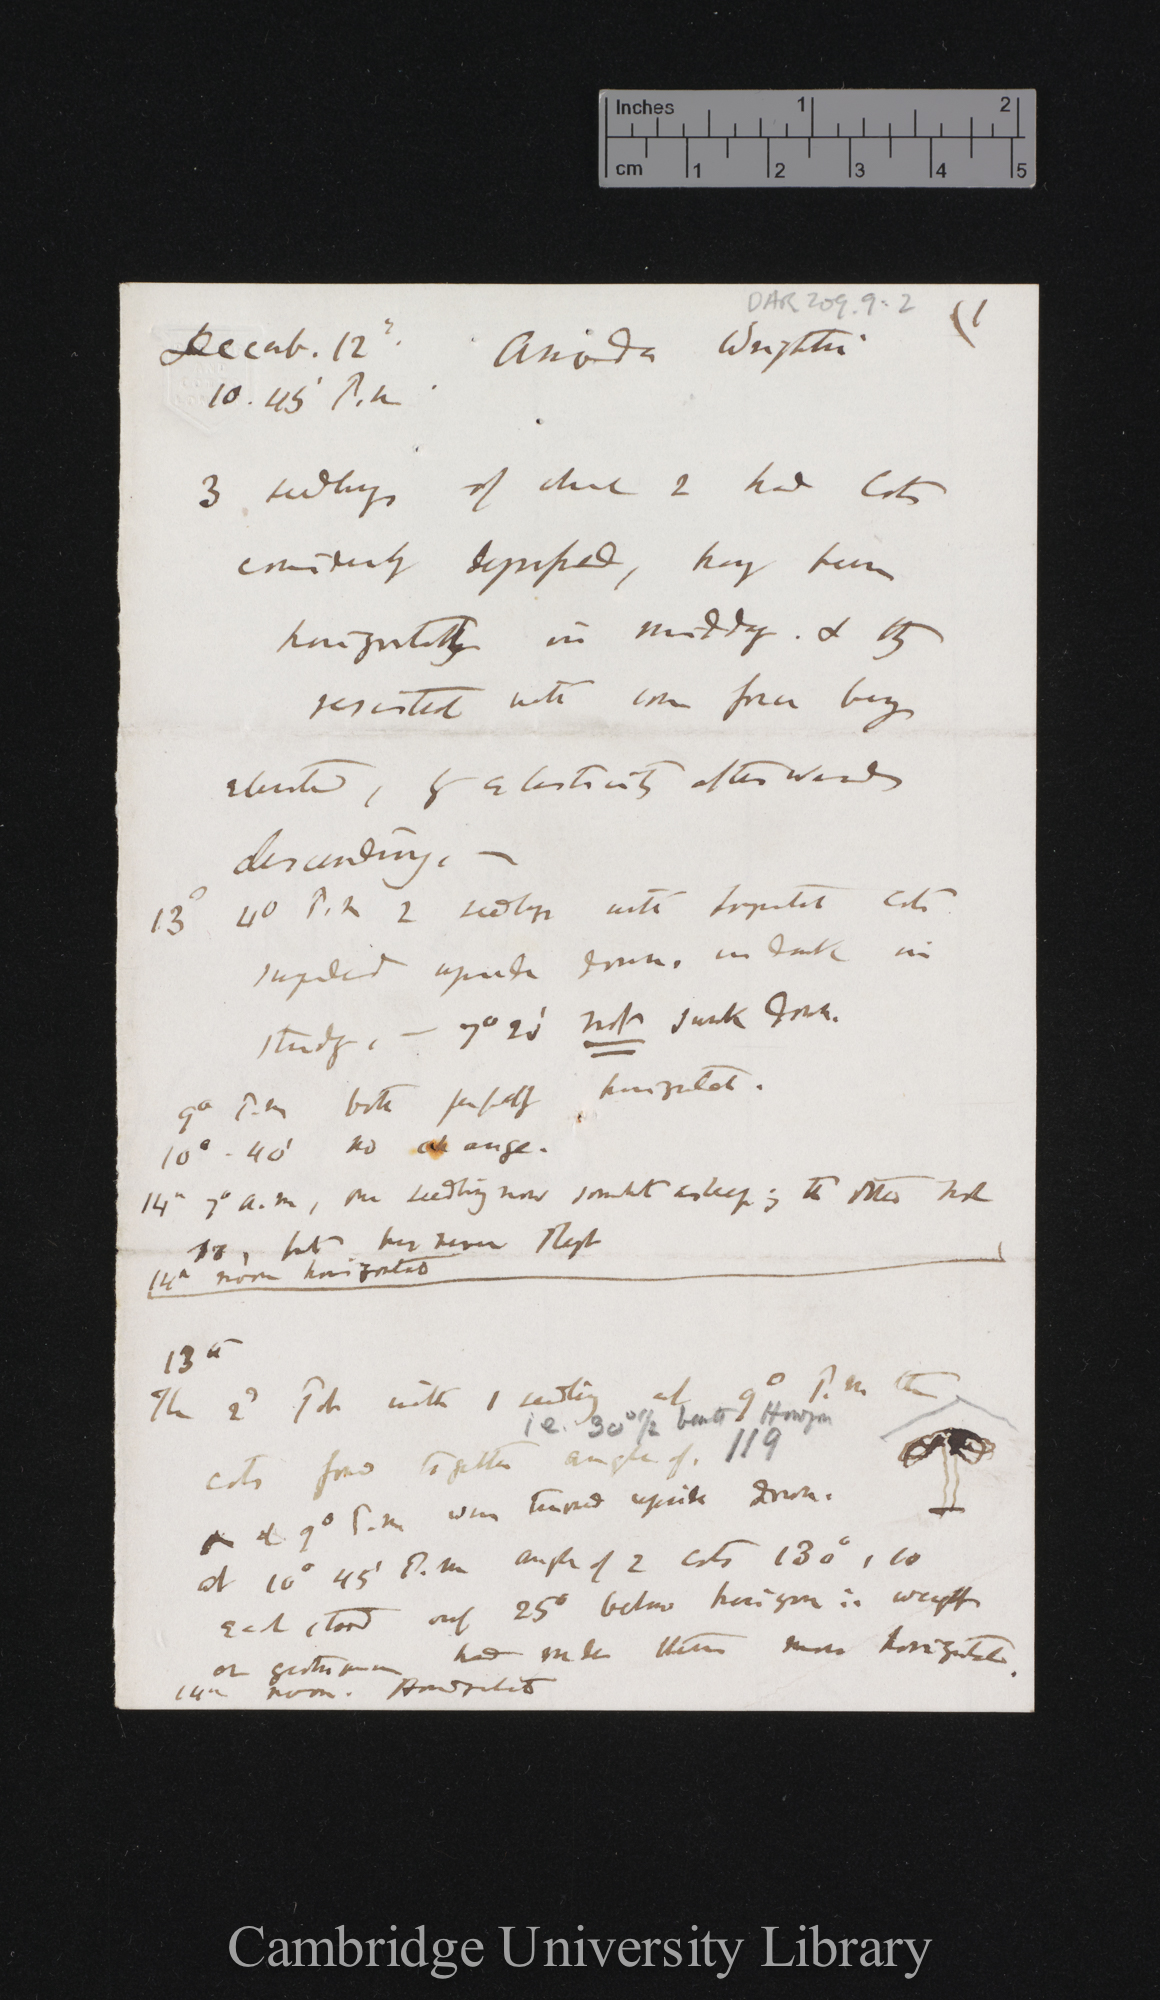 Inches 1 2
cm 1 2 3 4 5
DAR 209.9:2
(1
Decemb. 12th. Anoda Wrightii
10. 45' P.m
3 seedlings of which 2 had Cots
considerably depressed, having been
horizontally in midday. & they
resisted with some force being
elevated, by elasticity afterwards
descending. —
13th 4° P.m 2 seedlings with cots
suspended upside down. in dark in
study. — 7° 20' not sunk down.
9° P.m both perfectly horizontal.
10° - 40' no change.
14th 7° a.m, one seedling now somewhat asleep; the other not
so, but has never slept
14th noon horizontal
13th
The 2d Pot with 1 seedling at 9° P.m the
i.e. 30° 1/2 beneath Horizon
cots formed together angle of. 119
& 9° P.m was turned upside down.
at 10° 45' P.m angle of 2 cots 130°, so
each stood only 25° below horizon ie weight
or geotropism had made them more horizontal.
14th noon. Horizontal
Cambridge University Library